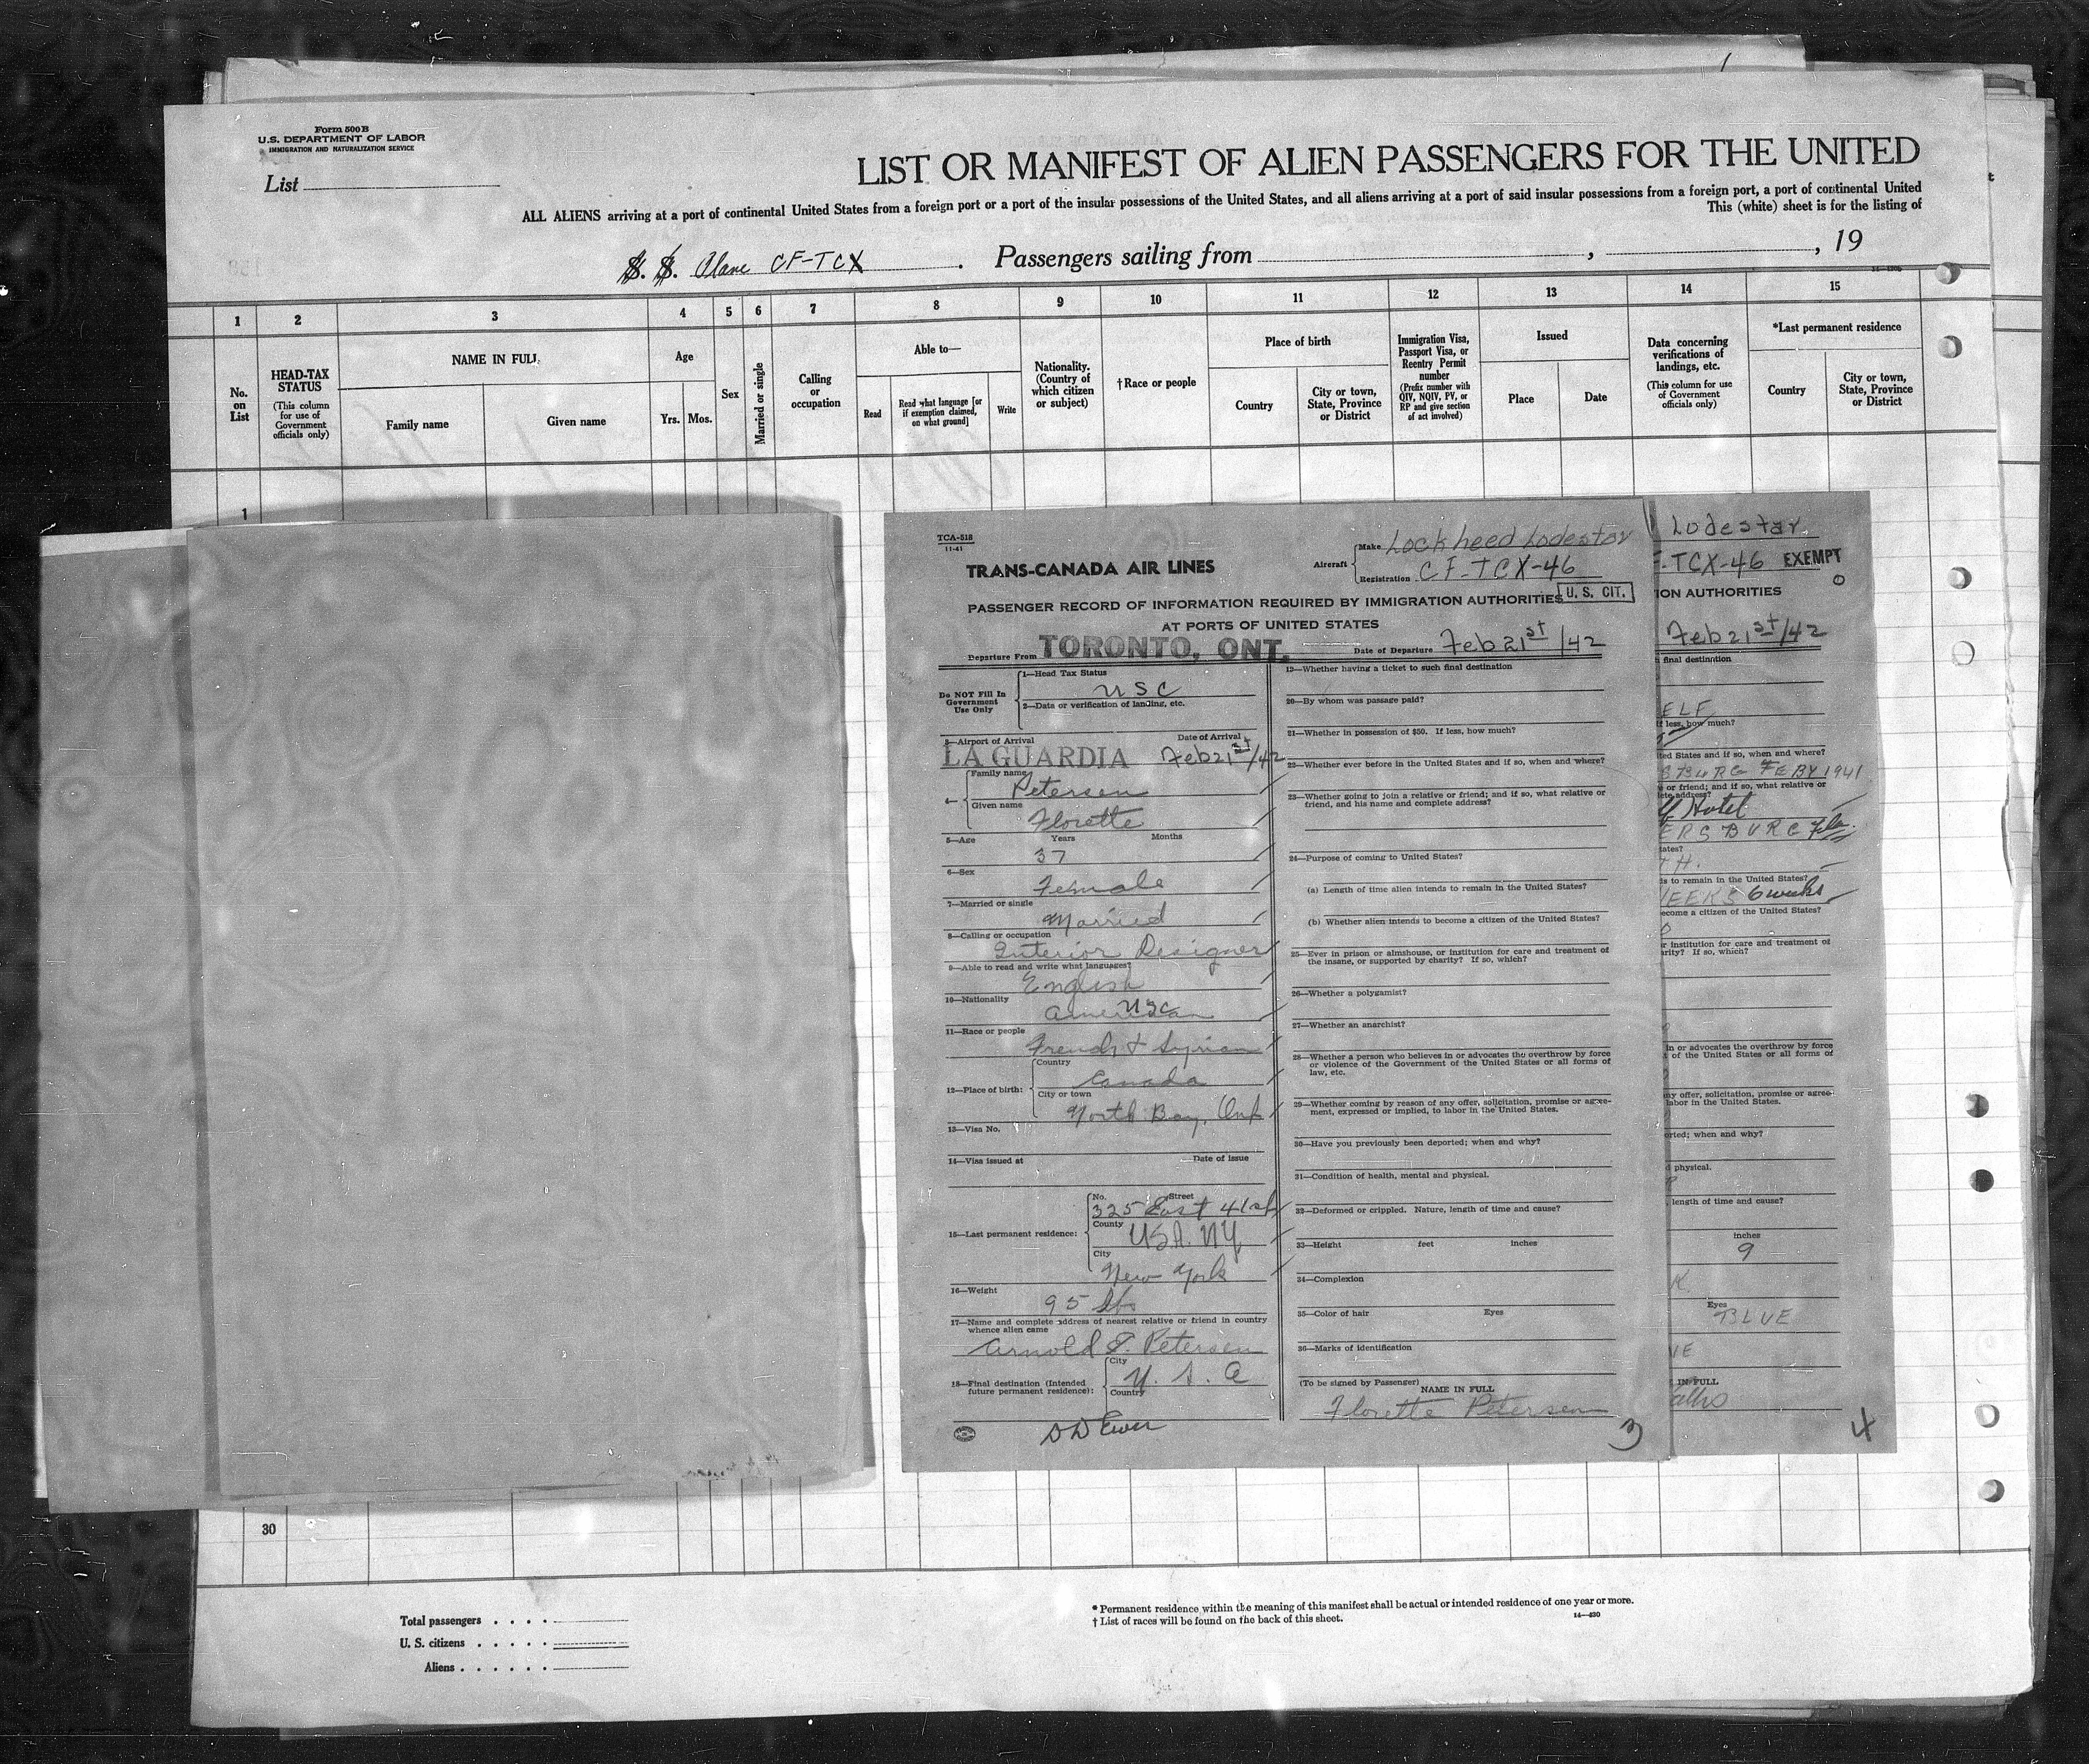 Form 500B
U.S. DEPARTMENT OF LABOR
IMMIGRATION AND NATURALIZATION SERVICE
List
LIST OR MANIFEST OF ALIEN PASSENGERS FOR THE UNITED
ALL ALIENS arriving at a port of continental United States from a foreign port or a port of the insular possessions of the United States, and all aliens arriving at a port of said insular possessions from a foreign port, a port of continental United
This (white) sheet is for the listing of
S. S. Plane CF-TCX. Passengers sailing from , , 19
1 2 3 4 5 6 7 8 9 10 11 12 13 14 15
No. on List
HEAD-TAX STATUS
(This column for use of Government officials only)
NAME IN FULL
Family name
Given name
Age
Yrs. Mos.
Sex
Married or single
Calling or occupation
Able to—
Read
Read what language [or if exemption claimed, on what ground]
Write
Nationality. (Country of which citizen or subject)
†Race or people
Place of birth
Country
City or town, State, Province or District
Immigration Visa, Passport Visa, or Reentry Permit number
(Prefix number with QIV, NQIV, PV, or RP and give section of act involved)
Issued
Place
Date
Data concerning verifications of landings, etc.
(This column for use of Government officials only)
*Last permanent residence
Country
City or town, State, Province or District
1
TCA-518
11-41
TRANS-CANADA AIR LINES
Aircraft
Make Lockheed Lodestar
Registration CF-TCX-46
PASSENGER RECORD OF INFORMATION REQUIRED BY IMMIGRATION AUTHORITIES
U. S. CIT.
AT PORTS OF UNITED STATES
Departure From TORONTO, ONT.
Date of Departure Feb 21st/42
Do NOT Fill In Government Use Only
1—Head Tax Status
USC
2—Data or verification of landing, etc.
3—Airport of Arrival Date of Arrival
LA GUARDIA Feb 21st/42
4—
Family name
Petersen
Given name
Florette
5—Age Years Months
37
6—Sex
Female
7—Married or single
Married
8—Calling or occupation
Interior Designer
9—Able to read and write what languages?
English
10—Nationality
American USC
11—Race or people
French & Syrian
12—Place of birth:
Country
Canada
City or town
North Bay, Ont
13—Visa No.
14—Visa issued at Date of Issue
15—Last permanent residence:
No. Street
325 East 41st
County
USA. NY
City
New York
16—Weight
95 lbs
17—Name and complete address of nearest relative or friend in country
whence alien came
Arnold P. Petersen
18—Final destination (Intended future permanent residence):
City
U. S. A
Country
19—Whether having a ticket to such final destination
20—By whom was passage paid?
21—Whether in possession of $50. If less, how much?
22—Whether ever before in the United States and if so, when and where?
23—Whether going to join a relative or friend; and if so, what relative or
friend, and his name and complete address?
24—Purpose of coming to United States?
(a) Length of time alien intends to remain in the United States?
(b) Whether alien intends to become a citizen of the United States?
25—Ever in prison or almshouse, or institution for care and treatment of
the insane, or supported by charity? If so, which?
26—Whether a polygamist?
27—Whether an anarchist?
28—Whether a person who believes in or advocates the overthrow by force
or violence of the Government of the United States or all forms of
law, etc.
29—Whether coming by reason of any offer, solicitation, promise or agree-
ment, expressed or implied, to labor in the United States.
30—Have you previously been deported; when and why?
31—Condition of health, mental and physical.
32—Deformed or crippled. Nature, length of time and cause?
33—Height feet inches
34—Complexion
35—Color of hair Eyes
36—Marks of identification
(To be signed by Passenger)
NAME IN FULL
Florette Petersen
3
Lodestar
F-TCX-46 EXEMPT
ION AUTHORITIES
Feb 21st/42
final destination
ELF
f less, how much?
ted States and if so, when and where?
FEBY 1941
or friend; and if so, what relative or
ete address?
Hotel
ERSBURG Fla.
tates?
TH.
ds to remain in the United States?
WEEKS 6 weeks
ecome a citizen of the United States?
or institution for care and treatment of
arity? If so, which?
in or advocates the overthrow by force
of the United States or all forms of
ny offer, solicitation, promise or agree-
labor in the United States.
orted; when and why?
d physical.
, length of time and cause?
inches
9
K
Eyes
BLUE
NE
IN FULL
4
30
Total passengers
U. S. citizens
Aliens
* Permanent residence within the meaning of this manifest shall be actual or intended residence of one year or more.
† List of races will be found on the back of this sheet.
14—430